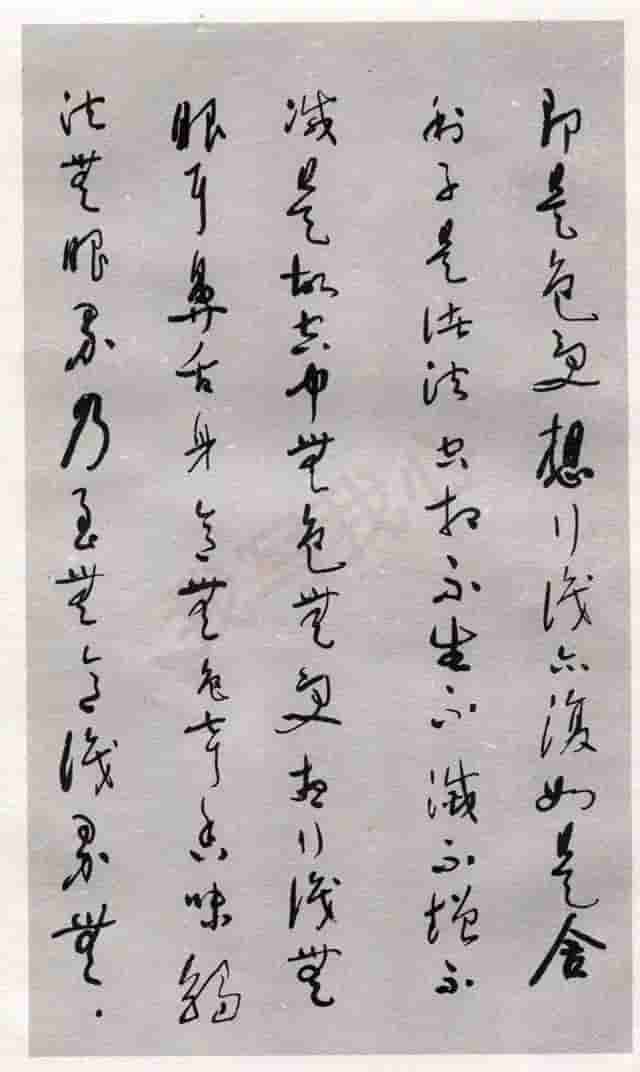 即是色受想行識亦復如是舍
利子是諸法空相不生不滅不增不
減是故空中無色無受想行識無
眼耳鼻舌身意無色聲香味觸
法無眼界乃至無意識界無